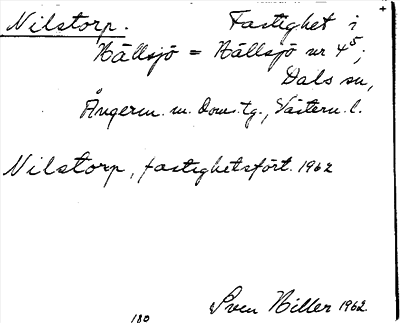 Nilstorp. Fastighet i
Hällsjö = Hällsjö nr 4⁵;
Dals sn,
Ångerm. m. Doms.tg., Västern. l.
Nilstorp, fastighetsfört. 1962
Sven Hiller 1962.
180